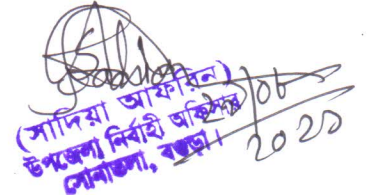 (সাদিয়া আফরিন)
উপজেলা নির্বাহী অফিসার
সোনাতলা, বগুড়া।
2021